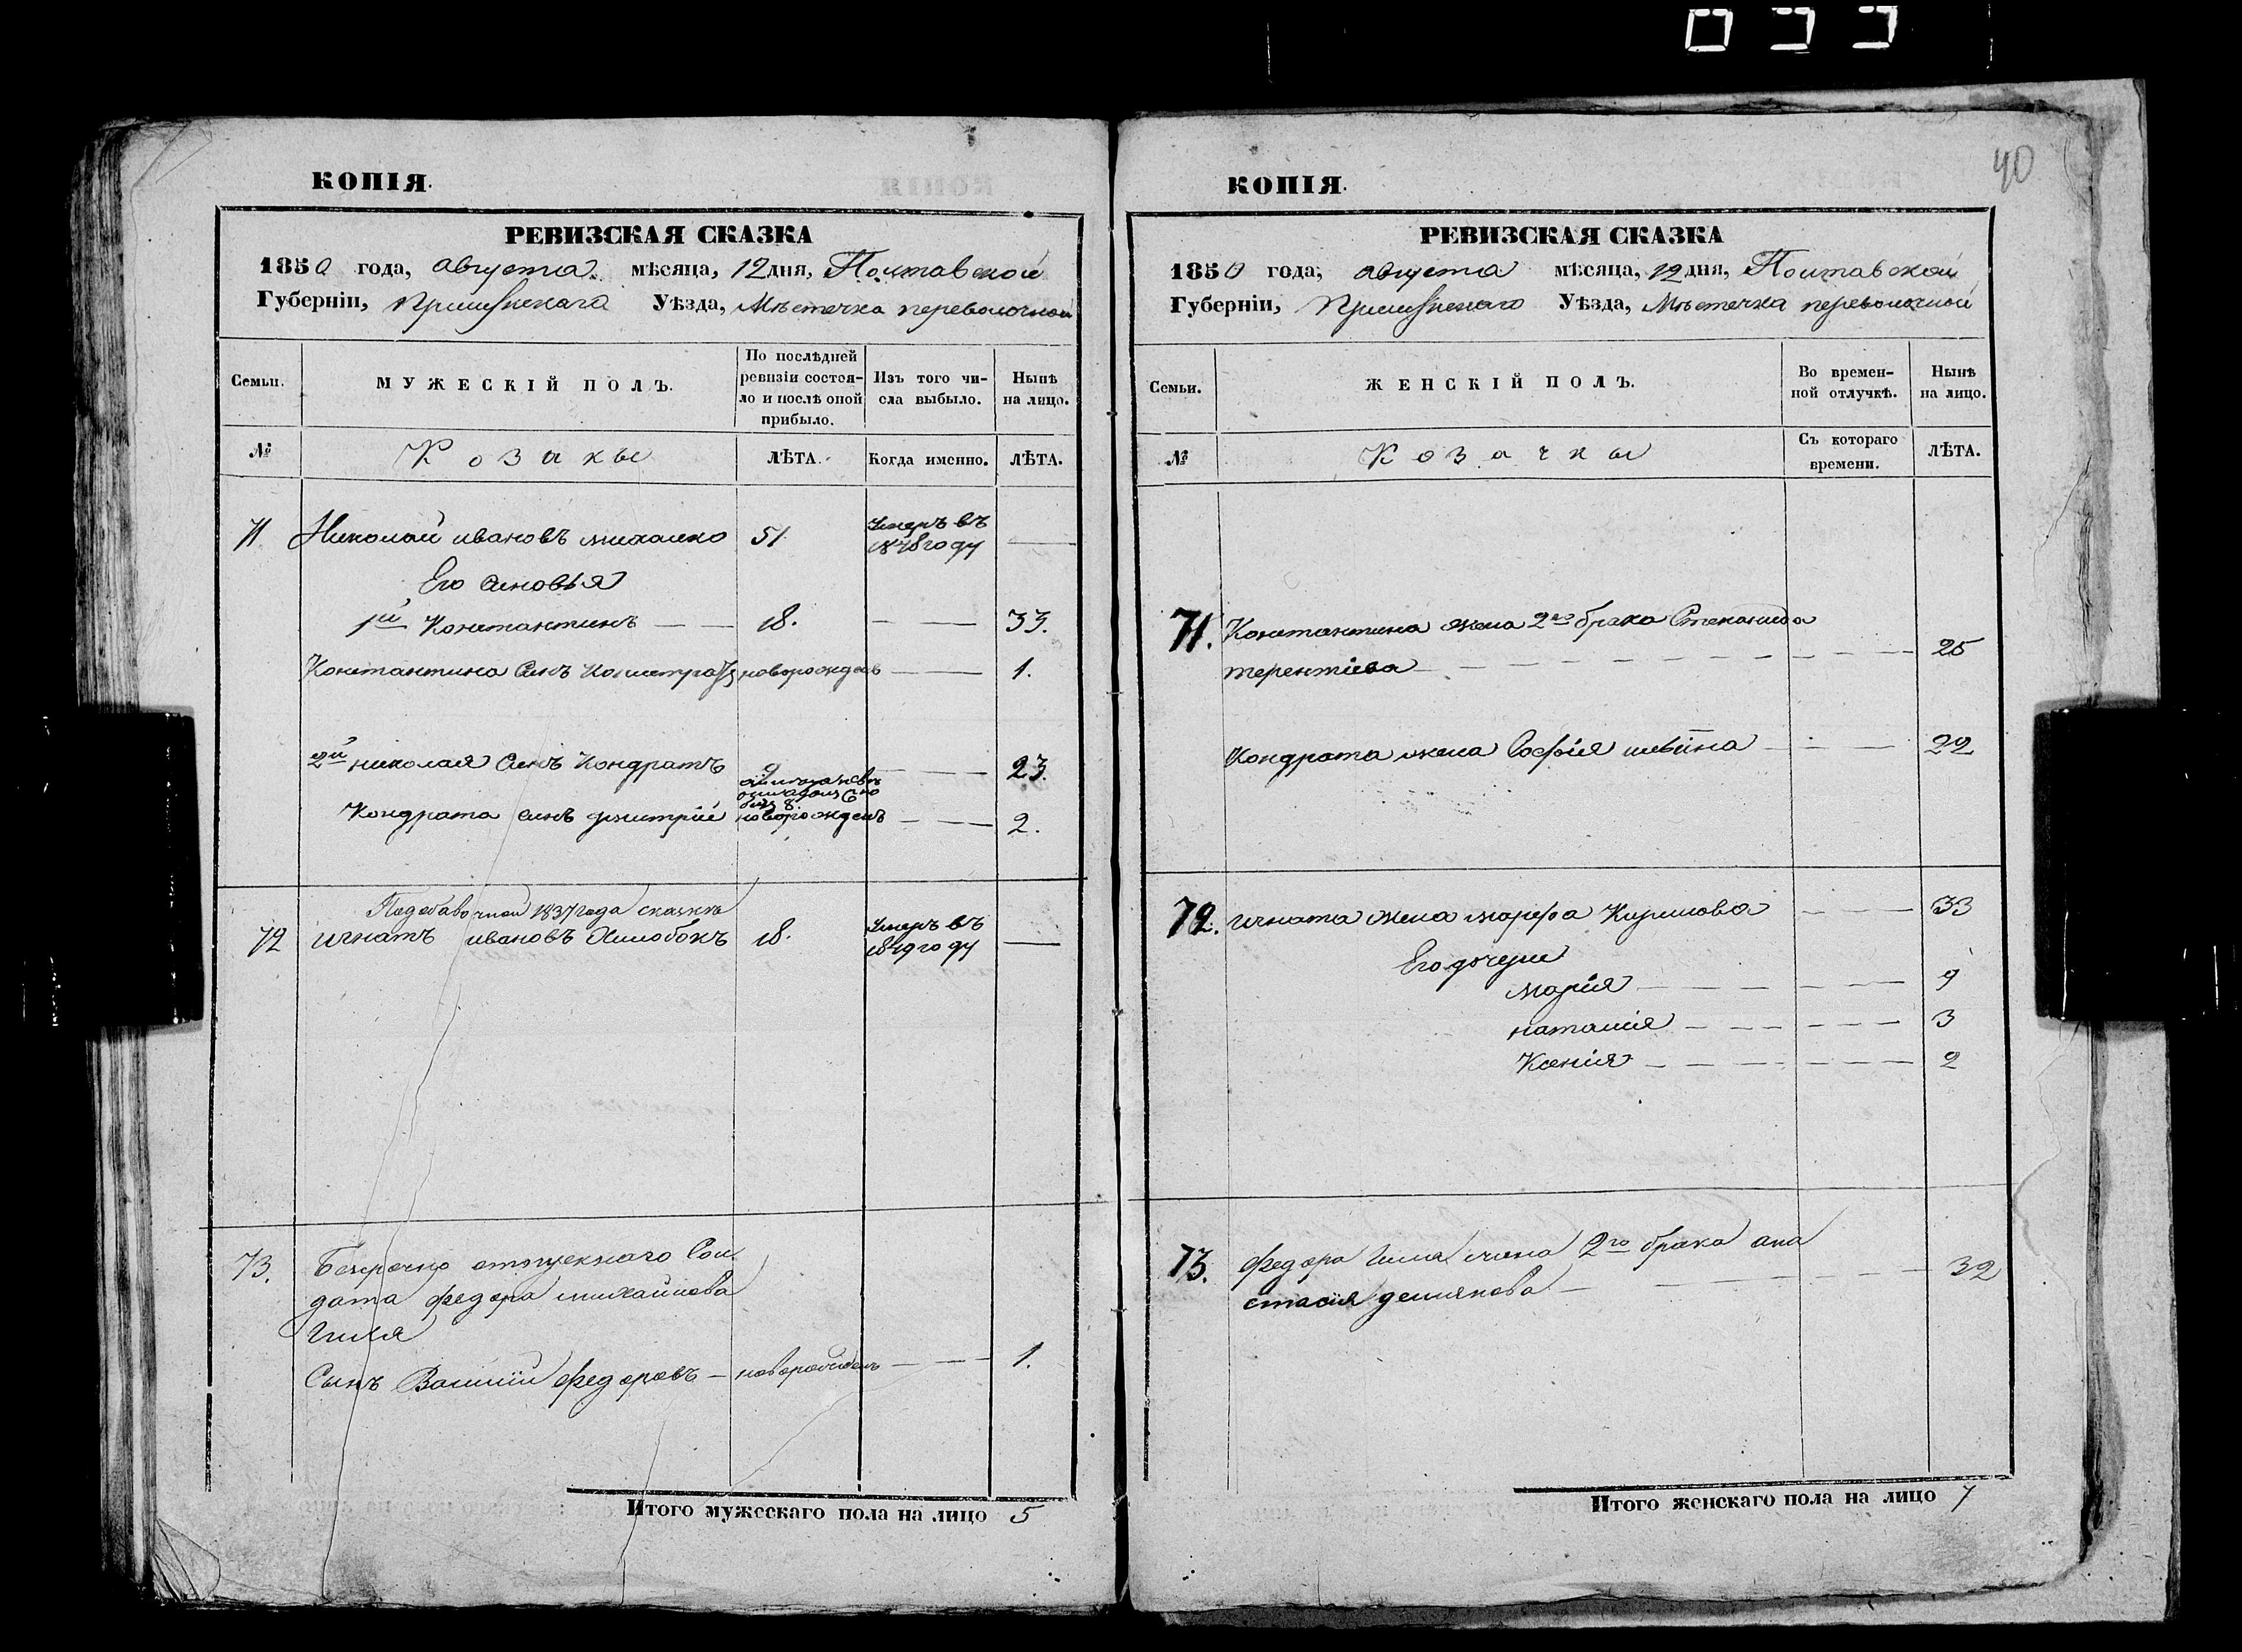 40
КОПІЯ.
РЕВИЗСКАЯ СКАЗКА
1850 года, августа мѣсяца, 12 дня, Полтавской
Губерніи, Прилуцкаго Уѣзда, Мѣстечка переволочной
Семьи.
МУЖЕСКІЙ ПОЛЪ.
По послѣдней
ревизіи состоя-
ло и послѣ оной
прибыло.
Изъ того чи-
сла выбыло.
Нынѣ
на лицо.
№
Козаки
ЛѢТА.
Когда именно.
ЛѢТА.
71 Николай ивановъ михалко 51 Умеръ въ
1848 году —
Его сыновья
1й Константинъ — — 18. — — 33.
Константина сынъ новорожденъ — — 1.
2й николая сынъ Кондратъ 9 — 23.
Кондрата сынъ дмитрій новорожденъ — — 2.
1837 года сказкѣ
72 игнатъ ивановъ 18. Умеръ въ
1849 году —
73. Безсрочно отпускнаго Сол
дата федора михайлова
Гиля
Сынъ Василій федоровъ — новорожденъ — — 1.
Итого мужескаго пола на лицо 5
КОПІЯ.
РЕВИЗСКАЯ СКАЗКА
1850 года, августа мѣсяца, 12 дня, Полтавской
Губерніи, Прилуцкаго Уѣзда, Мѣстечка переволочной
Семьи.
ЖЕНСКІЙ ПОЛЪ.
Во времен-
ной отлучкѣ.
Нынѣ
на лицо.
№
Козачки
Съ котораго
времени.
ЛѢТА.
71. Константина жена 2го брака Степанида
терентіева — 25
Кондрата жена Софія — 22
72. игната жена марфа Кирилова — 33
Его дочери
марія — 9
наталія — 3
Ксенія — 2
73. федора Гиля жена 2го брака ана
стасія демянова — 32
Итого женскаго пола на лицо 7